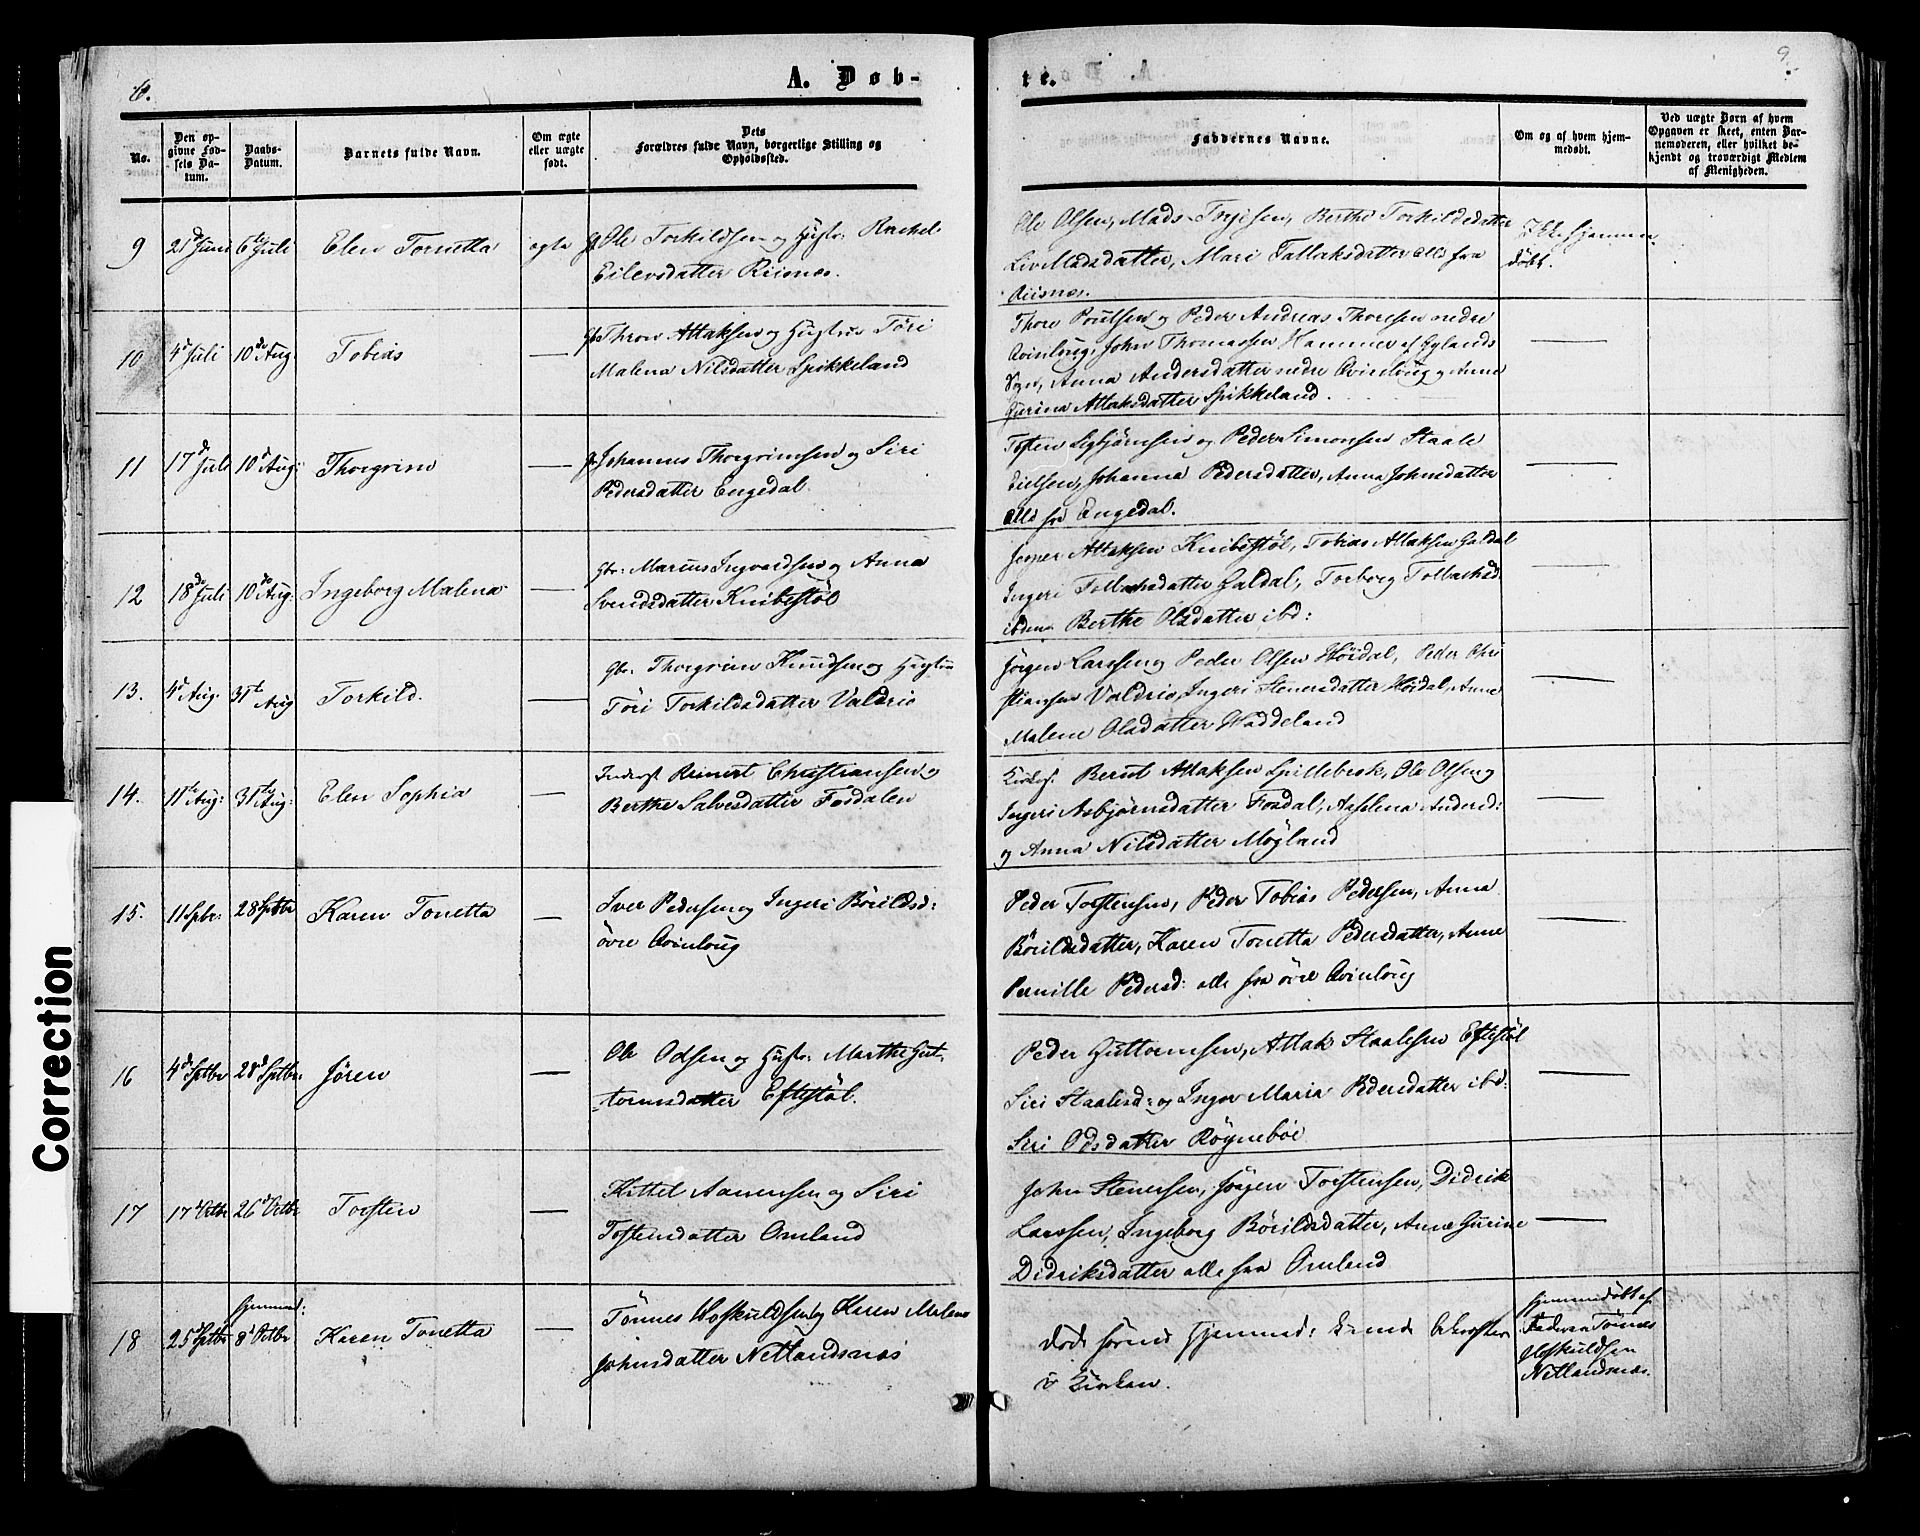 6.
A. Døb-
te.
9.
No.
Den op-
givne Fød-
sels Da-
tum.
Daabs-
Datum.
Barnets fulde Navn.
Om ægte
eller uægte
født.
Dets
Forældres fulde Navn, borgerlige Stilling og
Opholdssted.
Faddernes Navne.
Om og af hvem hjem-
medøbt.
Ved uægte Børn af hvem
Opgaven er skeet, enten Bar-
nemoderen, eller hvilket be-
kjendt og troværdigt Medlem
af Menigheden.
9 21 Juni 6te Juli Elen Tonetta ægte Ole Torkildsen og Hustr: Rachel
Eilevsdatter Risnes.
Ole Olsen, Mads Terjesen, Berthe Torkildsdatter
Liv Madsdatter, Mari Tallaksdatter alle fra
Risnes.
Ikke hjemme-
døbt.
10 4d Juli 10de Aug: Tobias — Thron Attaksen og Hustrue Töri
Malena Nilsdatter Spikkeland
Thore Poulsen og Peder Andreas Thoresen nedre
Qvinlaug, John Thomassen Hammer af Gylands
Sogn, Anna Andersdatter nedre Qvinlaug og Anne
Gurina Attaksdatter Spikkeland. —
11 17d Juli 10d Aug: Thorgrim — Johannes Thorgrimsen og Siri
Pedersdatter Engedal.
Tosten Sigbjørnsen og Peder Simonsen Staale
Eielsen, Johanna Pedersdatter, Anna Johnsdatter
alle fra Engedal. —
12 18de Juli 10de Aug: Ingeborg Malena — Gbr: Marius Ingvardsen og Anna
Svendsdatter Knibestöl
Jesper Attaksen Knibestöl, Tobias Attaksen Galdal
Ingeri Tollaksdatter Galdal, Torborg Tollaksd.
ibdem Berthe Olsdatter ibd: —
13. 4d Aug. 31te Aug Torkild. — Gbr. Thorgrim Knudsen og Hustrue
Töri Torkildsdatter Valdrie
Jörgen Larssen og Peder Olsen Höidal, Peder Chri
stiansen Valdrie, Ingeri Stenersdatter Höidal, Anne
Malene Olsdatter Haddeland —
14. 11te Aug: 31te Aug: Elen Sophia — Inderst Reinert Christiansen og
Berthe Salvesdatter Fosdalen
Kirkes. Berent Attaksen Spillebrok, Ole Olsen og
Ingeri Asbjørnsdatter Fosdal, Asselena Andersd:
og Anna Nilsdatter Mögland —
15. 11 Spbr: 28 Sptbr Karen Tonetta — Iver Pedersen og Ingeri Böilds d:
övre Qvinlaug
Peder Torstensen, Peder Tobias Pedersen, Anna
Böildsdatter, Karen Tonetta Pedersdatter, Anne
Pernille Pedersd: alle fra övre Qvinlaug —
16 4d Sptbr 28d Sptbr: Jören — Ole Odsen og Hustr: Marthe Gut-
tormsdatter Eftestöl.
Peder Guttormsen, Attak Staalesen Eftestöl
Siri Staalesd: og Inger Maria Pedersdatter ibd:
Siri Odsdatter Röyneböe —
17 17d Octbr 26d Octbr Torsten — Kittel Aanensen og Siri
Tostensdatter Omland
John Stenersen, Jörgen Torstensen, Didrik
Larssen, Ingeborg Böildsdatter, Anne Gurine
Didriksdatter alle fra Omland —
18 25d Sptbr hjemmed: 8d Octbr Karen Tonetta — Tönnes Hoskuldsen og Karen Malena
Johnsdatter Netlandsnæs
död förend Hjemmed: kunde bekræftes
i Kirken.
hjemmedøbt af
Faderen Tönnes
Hoskuldsen
Netlandsnæs.
Correction